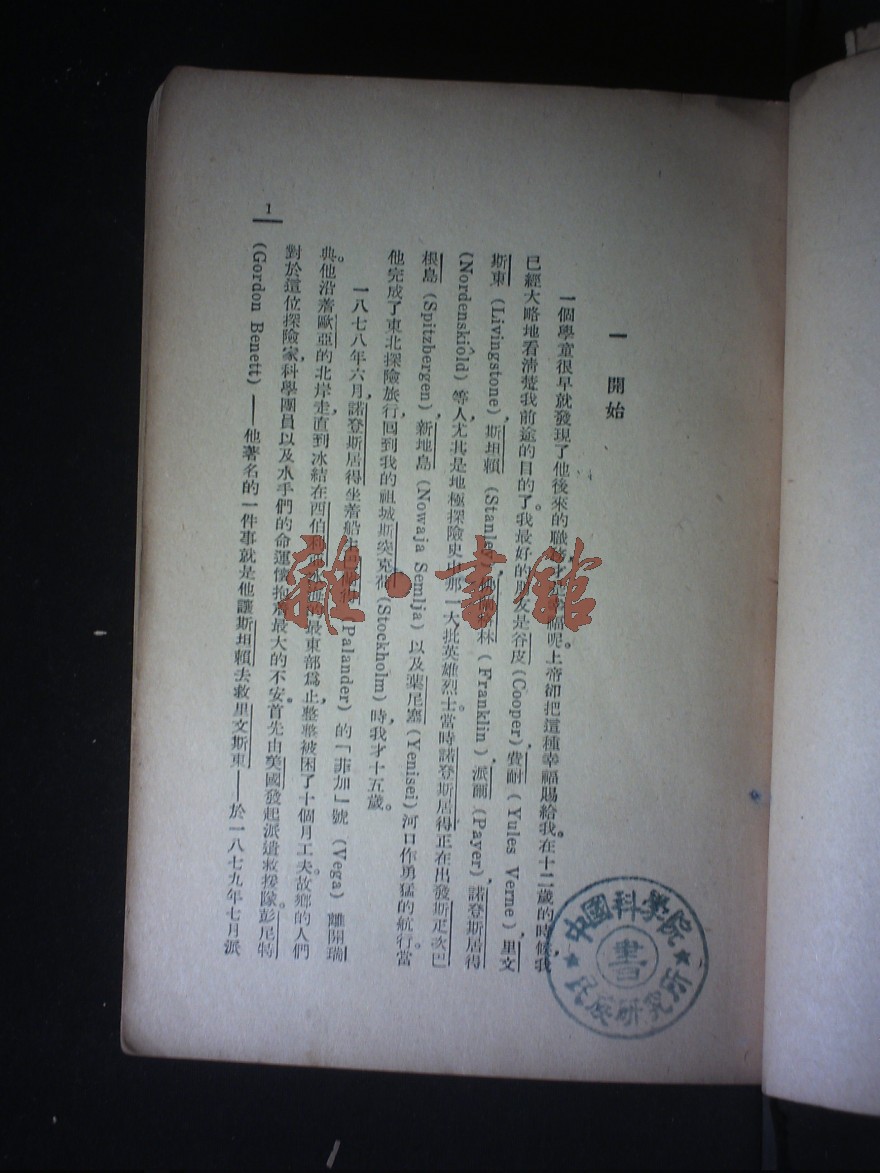 一 開始
一個學童很早就發現了他後來的職務
幸福呢。上帝卻把這種幸福賜給我。在十二歲的時候我
已經大略地看清楚我前途的目的了。我最好的朋友是谷皮(Cooper),費耐(Yules Verne),里文
斯東(Livingstone),斯坦賴(Stanley),林(Franklin),派爾(Payer),諾登斯居得
(Nordenskiöld)等人,尤其是地極探險史中那一大批英雄烈士。當時諾登斯居得正在出發斯疋次巴
根島(Spitzbergen),新地島(Nowaja Semlja)以及葉尼塞(Yenisei)河口作勇猛的航行。當
他完成了東北探險旅行,回到我的祖城斯突克(Stockholm)時,我才十五歲。
一八七八年六月,諾登斯居得坐着船(Palander)的「菲加」號(Vega)離開瑞
典。他沿着歐亞的北岸走,直到冰結在西伯的最東部爲止,整整被困了十個月工夫。故鄉的人們
對於這位探險家,科學團員以及水手們的命運懷抱着最大的不安。首先由美國發起派遣救援隊。彭尼特
(Gordon Benett)——他著名的一件事就是他讓斯坦賴去救里文斯東——於一八七九年七月派
1
中國科學院
民族研究所
書
雜·書館